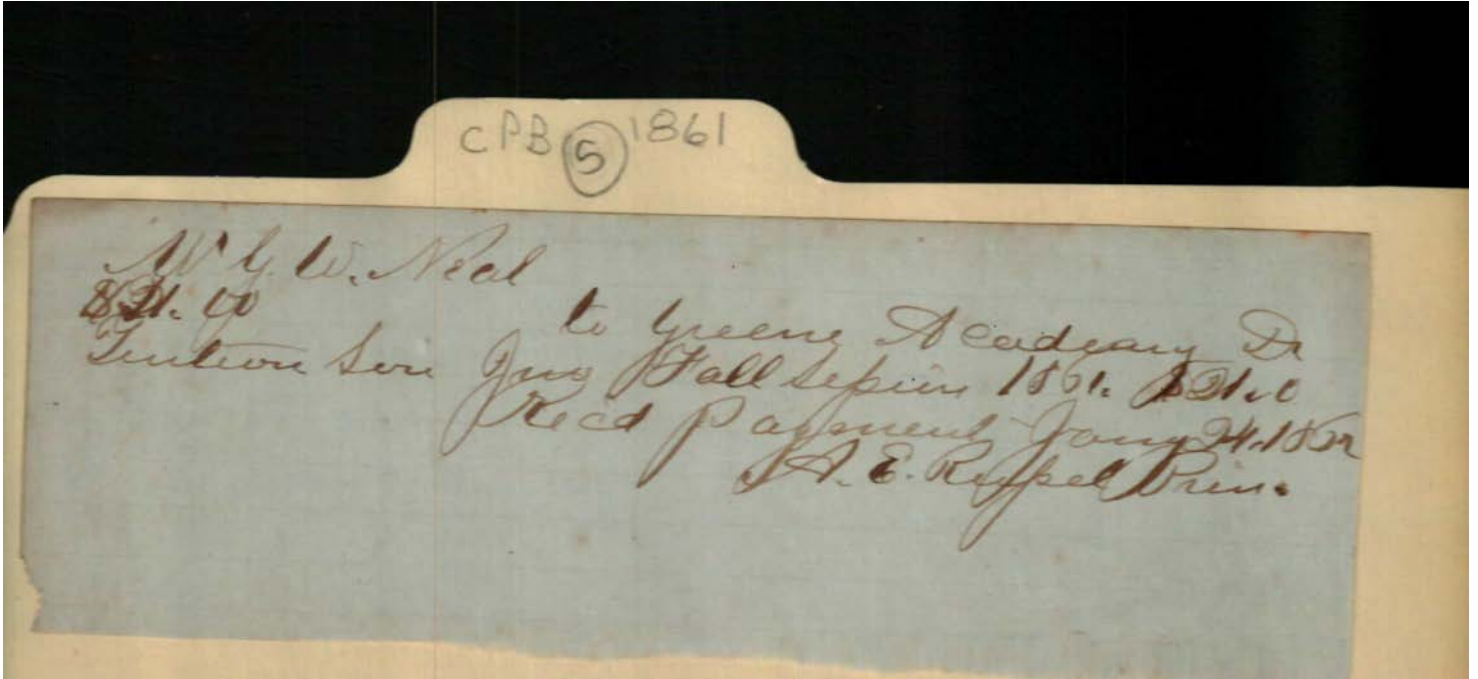 CPB 5 1861
Mr G. W. Neal
$21.00
to Greene Academy Dr
Tuition Son Jno Fall Session 1861. $21.0
Recd Payment Jany 24. 1862
A. E. Russel Prin.